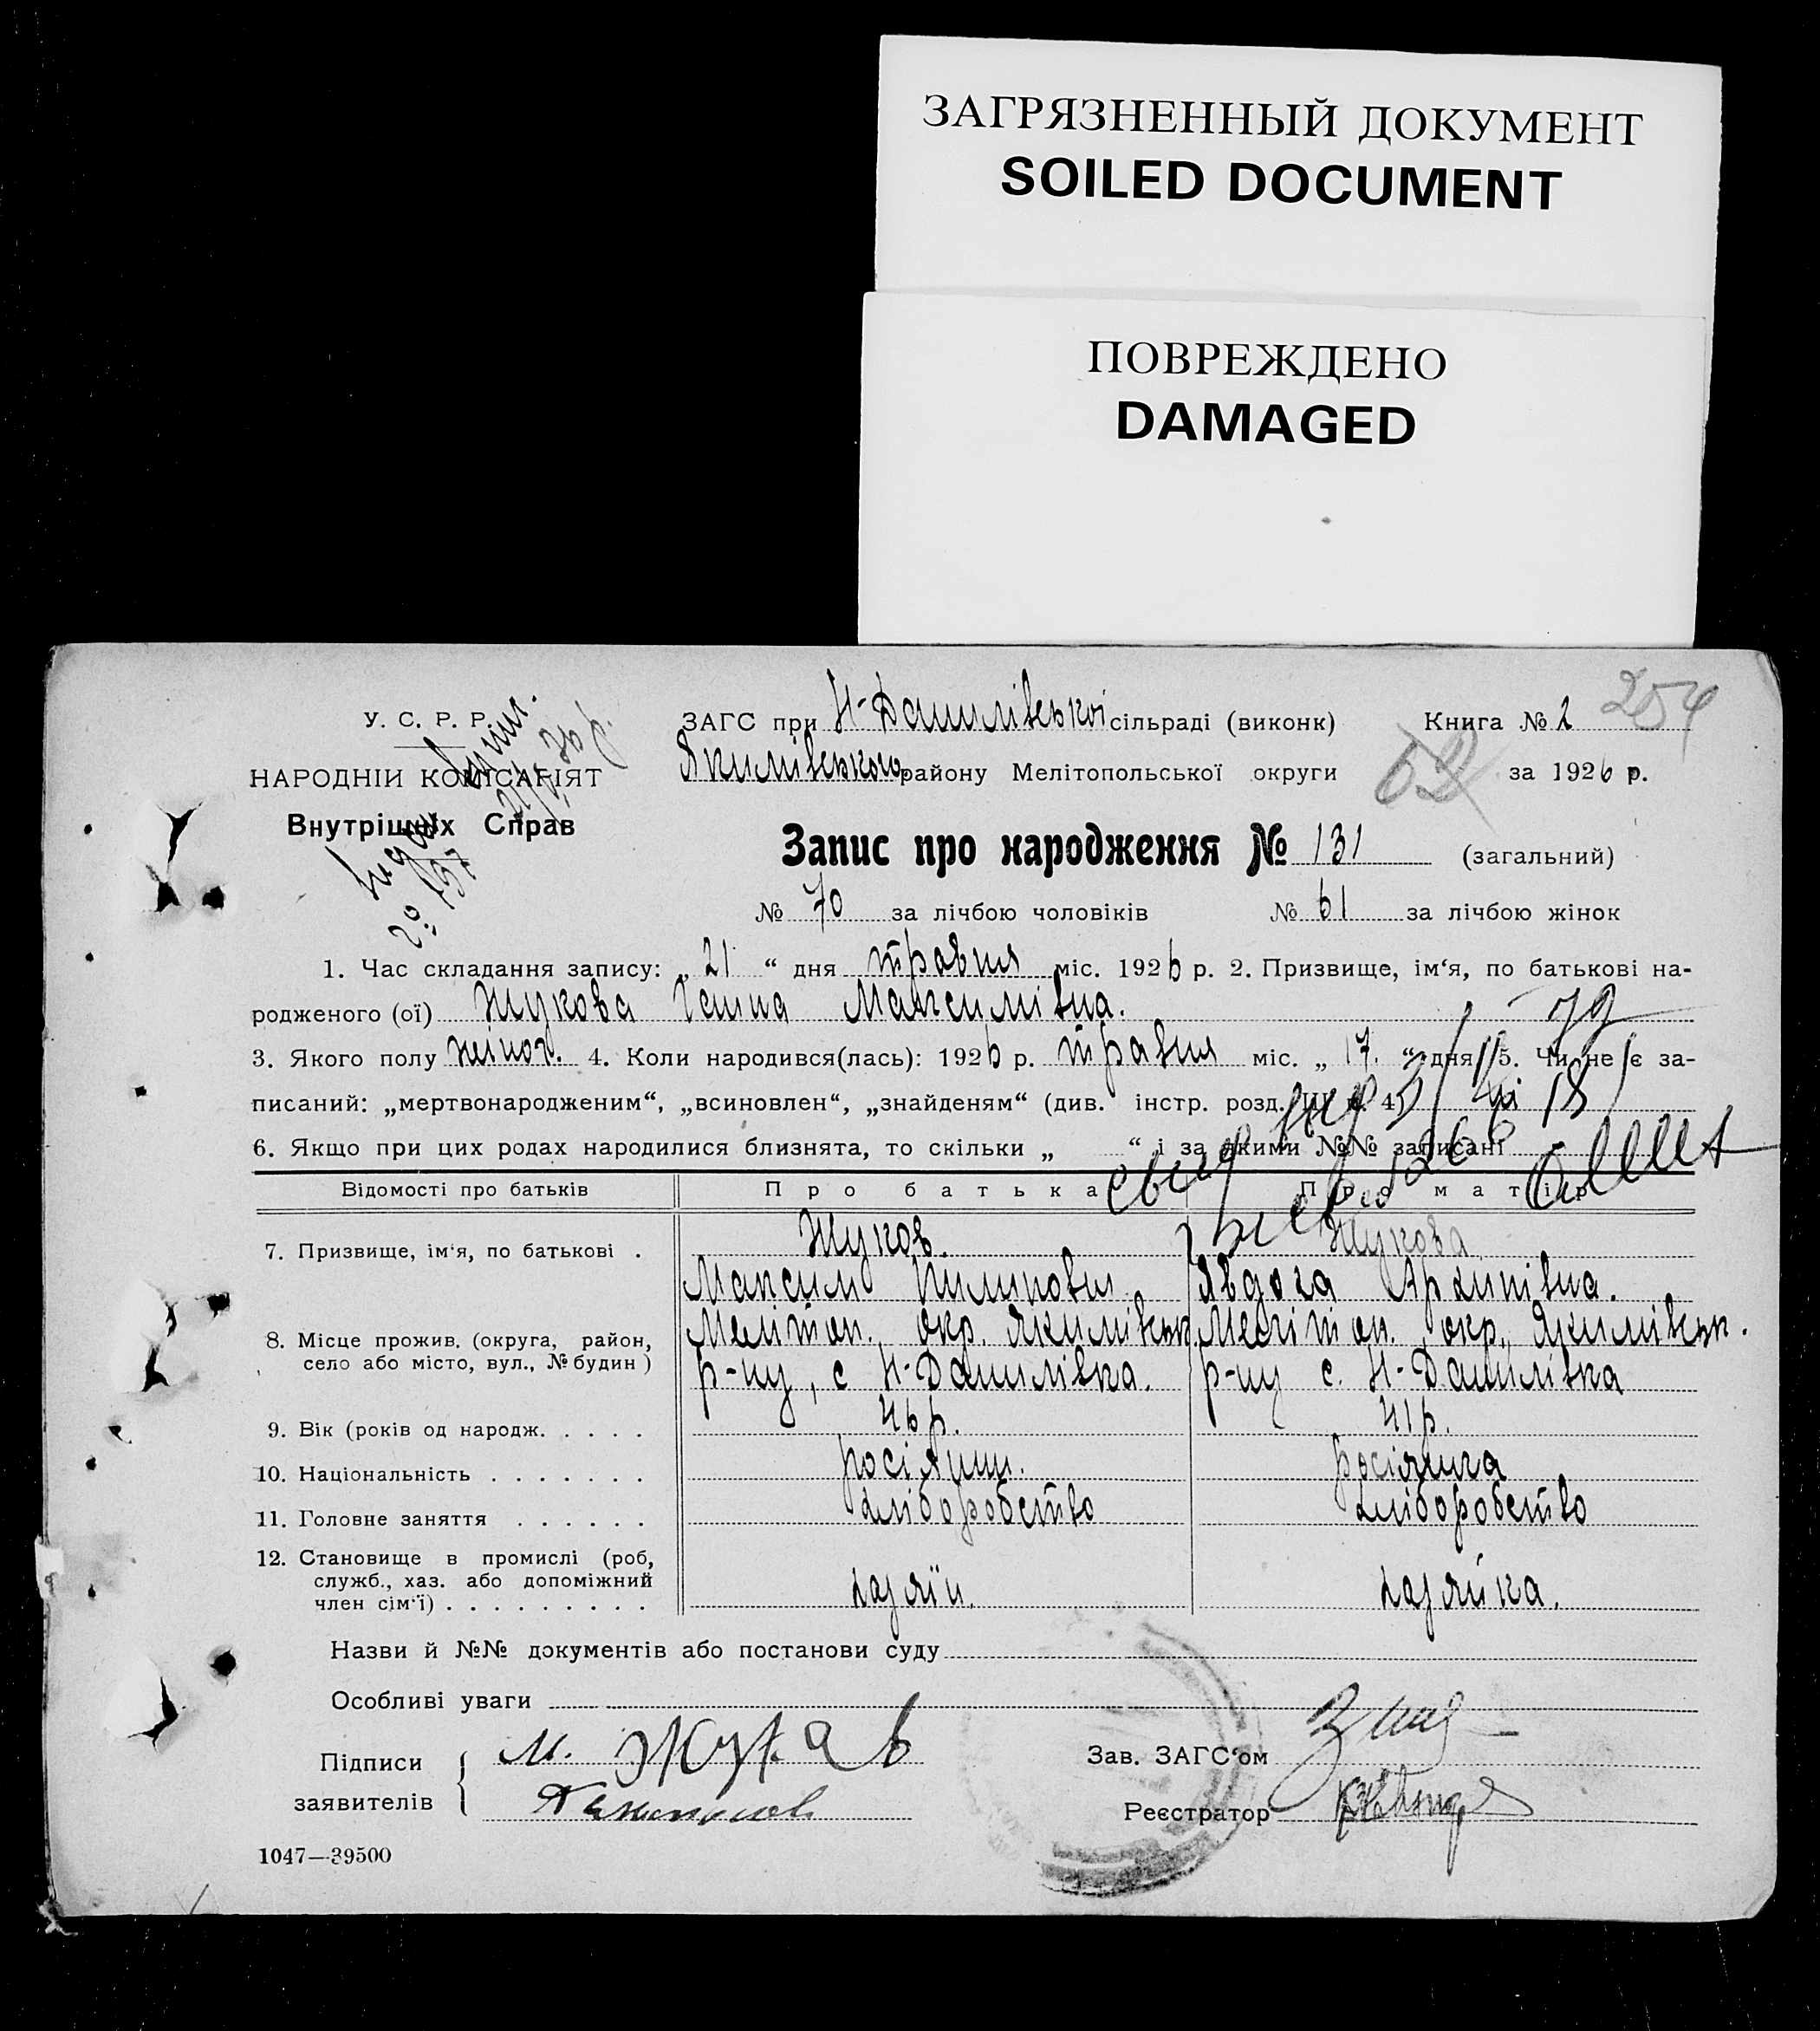 ЗАГРЯЗНЕННЫЙ ДОКУМЕНТ
SOILED DOCUMENT
ПОВРЕЖДЕНО
DAMAGED
254
У. С. Р. Р.
НАРОДНІЙ КОМІСАРІЯТ
Внутрішніх Справ
ЗАГС при Н-Данилівській сільраді (виконк) Книга № 2
Якимівського району Мелітопольської округи за 1926 р.
Запис про народження № 131 (загальний)
№ 70 за лічбою чоловіків № 61 за лічбою жінок
1. Час складання запису: „ 21 “ дня травня міс. 1926 р. 2. Призвище, ім‘я, по батькові на-
родженого (ої) Жукова Ганна Максимівна.
3. Якого полу жіноч. 4. Коли народився(лась): 1926 р. травня міс. „ 17. “ дня 5. Чи не є за-
писаний: „мертвонародженим“, „всиновлен“, „знайденям“ (див. інстр. розд. III п. 4)
6. Якщо при цих родах народилися близнята, то скільки „ “ і за якими №№ записані
Відомості про батьків Про батька Про матір
7. Призвище, ім‘я, по батькові . Жуков. Жукова
Максим Пилипович Явдоха Архипівна.
8. Місце прожив. (округа, район, Мелітоп. окр. Якимівськ. Мелітоп. окр., Якимівськ.
село або місто, вул., № будин) р-ну, с Н-Данилівка. р-ну с. Н-Данилівка
9. Вік (років од народж. . . . . 46 р. 41 р.
10. Національність . . . . . . . росіянин. росіянка
11. Головне заняття . . . . . . хліборобство хліборобство
12. Становище в промислі (роб,
служб., хаз. або допоміжний
член сім‘ї) . . . . . . . . . хазяїн. хазяйка.
Назви й №№ документів або постанови суду
Особливі уваги
Підписи М. Жукав Зав. ЗАГС‘ом
заявителів Реєстратор
1047—39500